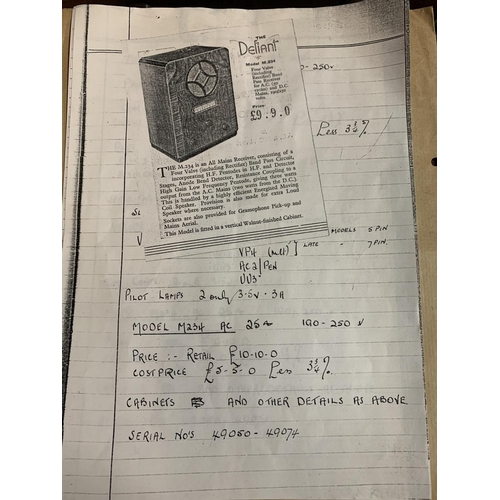 THE
Defiant
Model M.234
Four Valve
(including
Rectifier) Band
Pass Receiver
for A.C. (50
cycles) and D.C.
Mains, 200/250
volts
Price:
£9.9.0
-250v
Less 3¾%
THE M.234 is an All Mains Receiver, consisting of a
Four Valve (including Rectifier) Band Pass Circuit,
incorporating H.F. Pentodes in H.F. and Detector
Stages, Anode Bend Detector, Resistance Coupling to a
High Gain Low Frequency Pentode, giving three watts
output from the A.C. Mains (two watts from the D.C.)
This is handled by a highly efficient Energised Moving
Coil Speaker. Provision is also made for extra Loud
Speaker where necessary.
Sockets are also provided for Gramophone Pick-up and
Mains Aerial.
This Model is fitted in a vertical Walnut-finished Cabinet.
SE
V
MODELS 5 PIN
VP4 (Met) LATE - 7 PIN.
AC2/PEN
UU3
PILOT LAMPS 2 only 3.5v .3A
MODEL M234 AC 25~ 190-250 V
PRICE :- RETAIL £10-10-0
COST PRICE £5-5-0 Less 3¾%
CABINETS AND OTHER DETAILS AS ABOVE
SERIAL NO'S 49050-49074